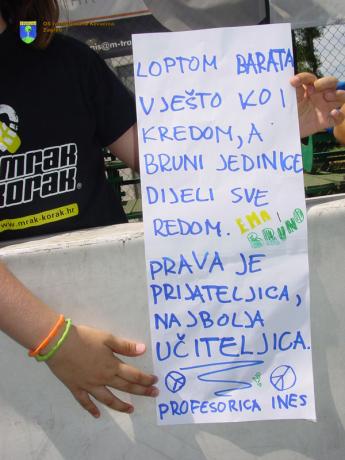 LOPTOM BARATA
VJEŠTO KO I
KREDOM, A
BRUNI JEDINICE
DIJELI SVE
REDOM. EMA I
BRUNO
PRAVA JE
PRIJATELJICA,
NAJBOLJA
UČITELJICA.
PROFESORICA INES
mrak
korak
www.mrak-korak.hr
is@m-tro